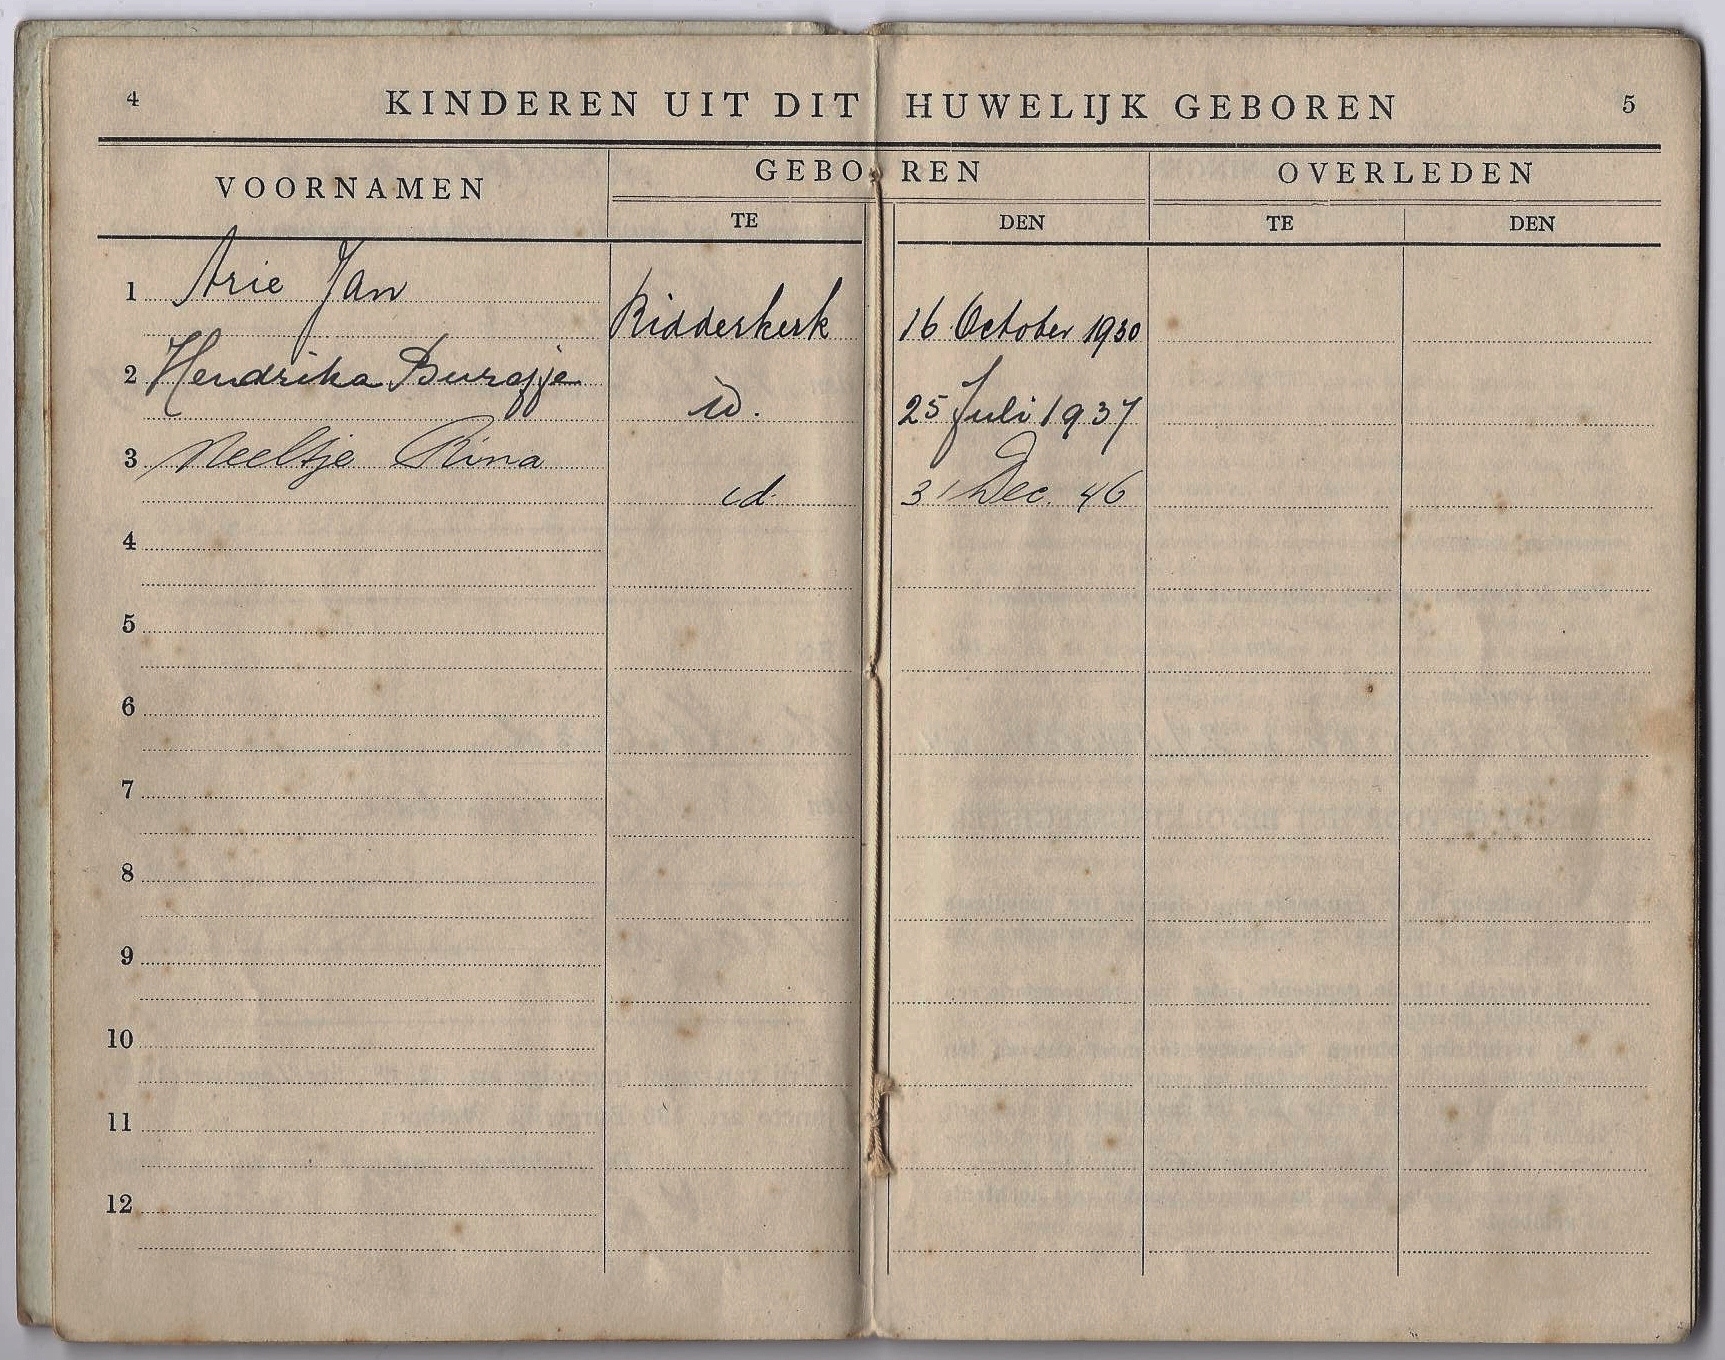 4 KINDEREN UIT DIT HUWELIJK GEBOREN 5
VOORNAMEN GEBOREN OVERLEDEN
TE DEN TE DEN
1 Arie Jan
Ridderkerk 16 October 1930
2 Hendrika Burgje
id. 25 Juli 1937
3 Neeltje Rina
id. 31 Dec. 46
4
5
6
7
8
9
10
11
12